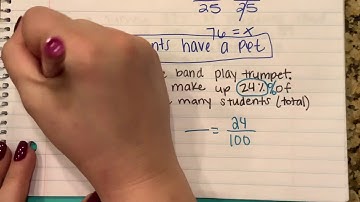 25 25
76 = x
ents have a pet
band play trumpet.
make up 24% % of
many students (total)
— = 24
100